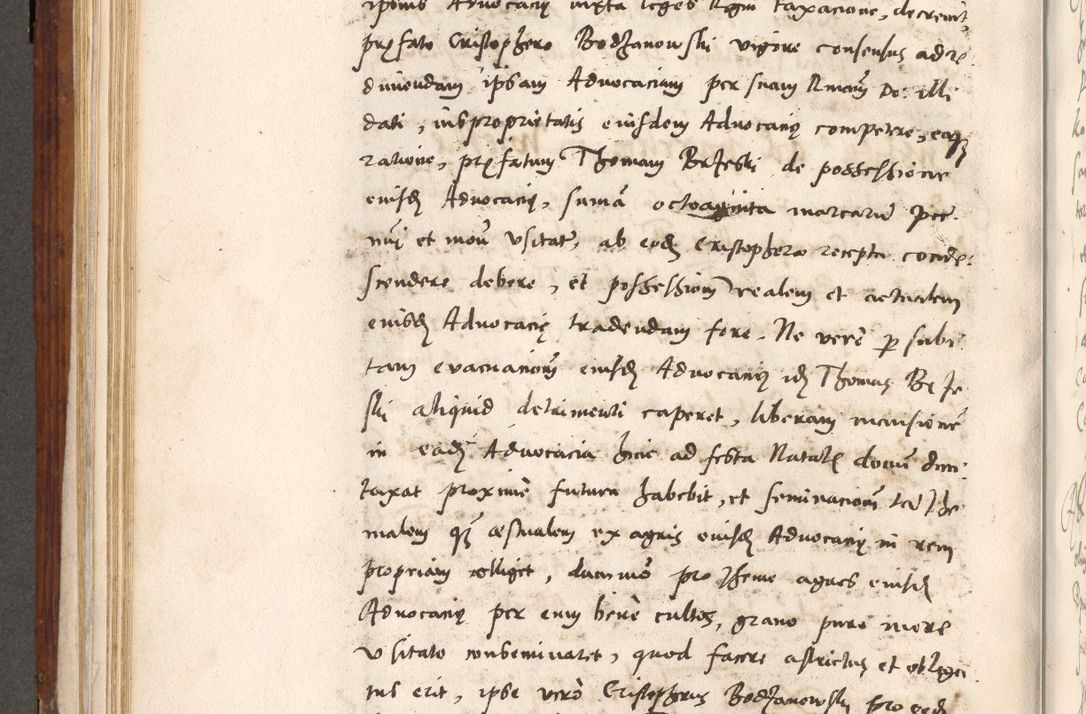 ipsius Advocacię iuxta leges Regni taxacione, decrevit,
pręfato Cristophero Bodzanowski vigore consensus adre
dimendam ipsam Advocaciam per suam Rmam Do: illi
dati, ius proprietatis eiusdem Advocacię competere, eaqz
ratione, pręfatum Thomam Brzeski de possessione
eiusd Advocacię, sumã octoaginta marcarũ pec
nię et monę usitatę, ab eod Cristophero recepta conde
scendere debere, et possessionẽ realem et actualem
eiusd Advocacię tradendam fore. Ne vero p subi
tam evacuationẽ eiusd Advocacię id Thomas Brze
ski aliquid detrimenti caperet, liberam mansionẽ
in ead Advocacia hinc ad festa Natal domĩ dun
taxat proximẽ futura habebit, et seminacionẽ tã hie
malem qz aestivalem ex agris eiusd Advocacię in rem
propriam colliget, dummõ pro hieme agros eiusd
Advocacię per eum bene cultos, grano puro more
usitato conseminaret, quod facere astrictus et obliga
tus erit, ipse vero Cristopherus Bodzanowski pro eod